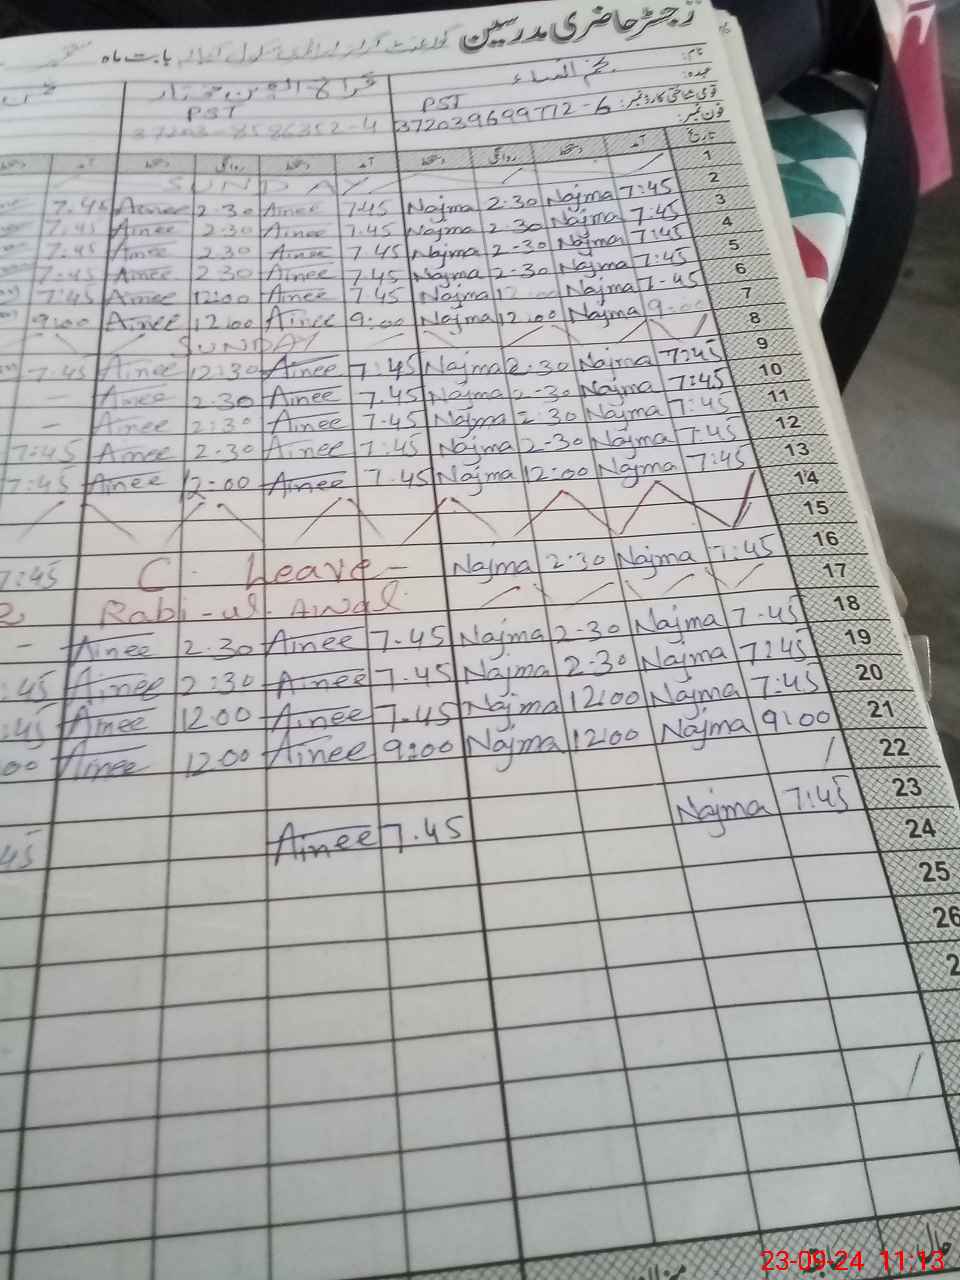 رجسٹر حاضری مدرسین
بابت ماہ
نام:
نجم النساء
عہدہ:
PST
PST
قومی شناختی کارڈ نمبر: 372039699772-6
37203-8586352-4
فون نمبر:
تاریخ آمد دستخط روانگی دستخط آمد دستخط روانگی دستخط آمد
1
SUNDAY
7.45 Ainee 2.30 Ainee 7.45 Najma 2.30 Najma 7:45 2
7.45 Ainee 2.30 Ainee 7.45 Najma 2-30 Najma 7:45 3
7:45 Ainee 2.30 Ainee 7.45 Najma 2-30 Najma 7:45 4
7:45 Ainee 2.30 Ainee 7.45 Najma 2-30 Najma 7:45 5
7:45 Ainee 12:00 Ainee 7.45 Najma 12:00 Najma 7-45 6
9:00 Ainee 12:00 Ainee 9:00 Najma 12:00 Najma 9:00 7
SUNDAY 8
7.45 Ainee 12:30 Ainee 7:45 Najma 2:30 Najma 7:45 9
- Ainee 2.30 Ainee 7.45 Najma 2-30 Najma 7:45 10
- Ainee 2:30 Ainee 7.45 Najma 2:30 Najma 7:45 11
7:45 Ainee 2.30 Ainee 7:45 Najma 2-30 Najma 7:45 12
7:45 Ainee 12:00 Ainee 7.45 Najma 12:00 Najma 7:45 13
14
15
7:45 C. Leave - Najma 2:30 Najma 7:45 16
Rabi-ul-Awal 17
- Ainee 2.30 Ainee 7.45 Najma 2-30 Najma 7.45 18
:45 Ainee 2:30 Ainee 7.45 Najma 2-30 Najma 7:45 19
:45 Ainee 12.00 Ainee 7.45 Najma 12:00 Najma 7:45 20
00 Ainee 12.00 Ainee 9:00 Najma 12:00 Najma 9:00 21
22
45 Ainee 7.45 Najma 7:45 23
24
25
26
2
23-09-24 11:13